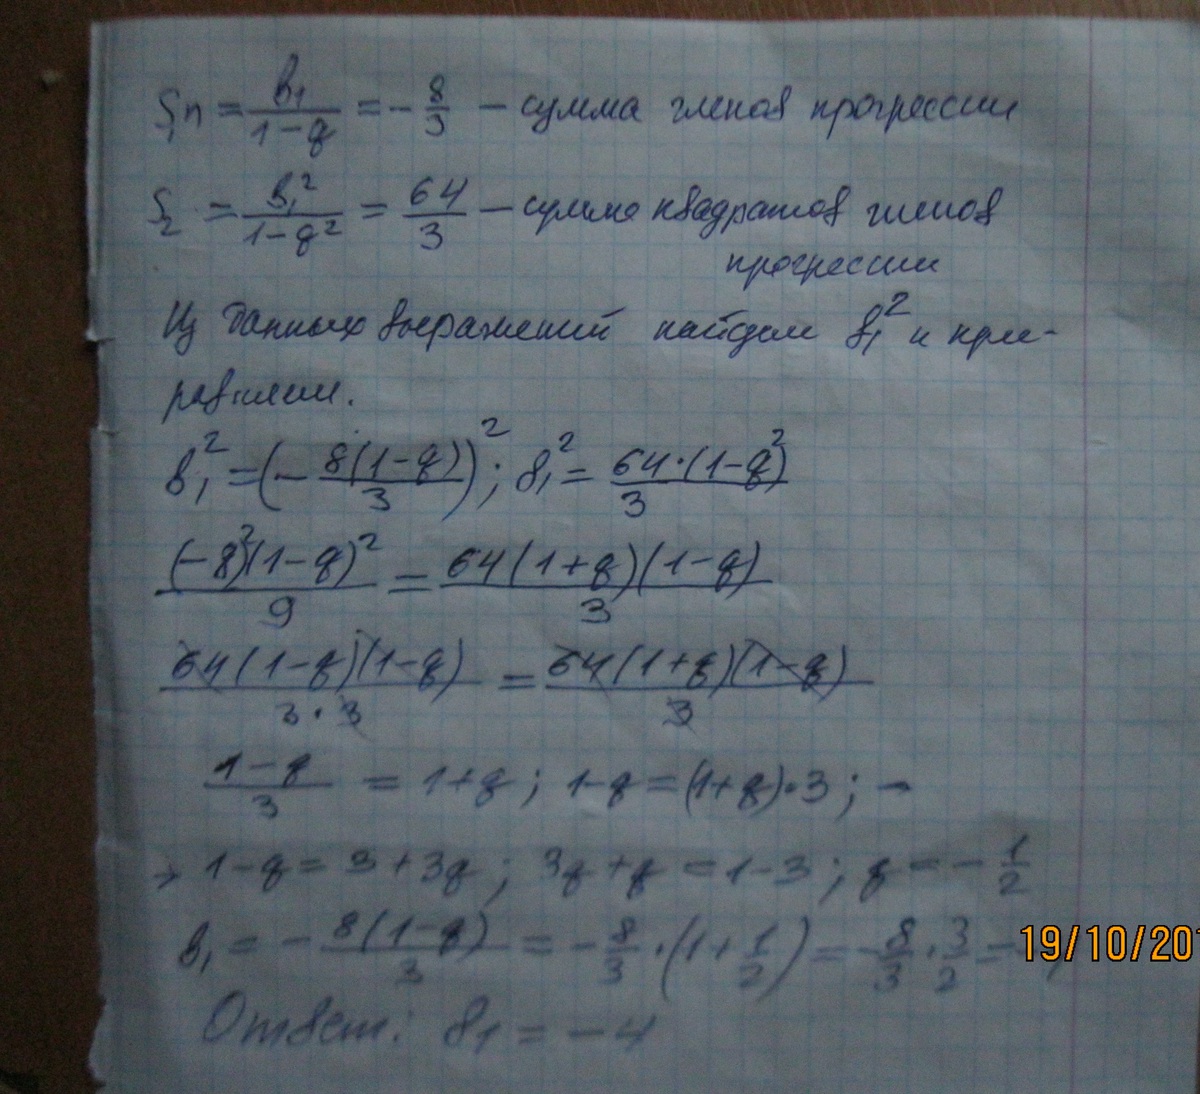 Sn = b₁/(1-q) = -8/3 - сумма членов прогрессии
S₂ = b₁²/(1-q²) = 64/3 - сумма квадратов членов
прогрессии
Из данных выражений найдем b₁² и при-
равняем.
b₁² = (-8(1-q)/3)²; b₁² = 64·(1-q²)/3
(-8)²(1-q)²/9 = 64(1+q)(1-q)/3
64(1-q)(1-q)/(3·3) = 64(1+q)(1-q)/3
(1-q)/3 = 1+q; 1-q = (1+q)·3; -
→ 1-q = 3+3q; 3q+q = 1-3; q = -1/2
b₁ = -8(1-q)/3 = -8/3·(1+1/2) = -8/3·3/2 =
19/10/201
Ответ: b₁ = -4